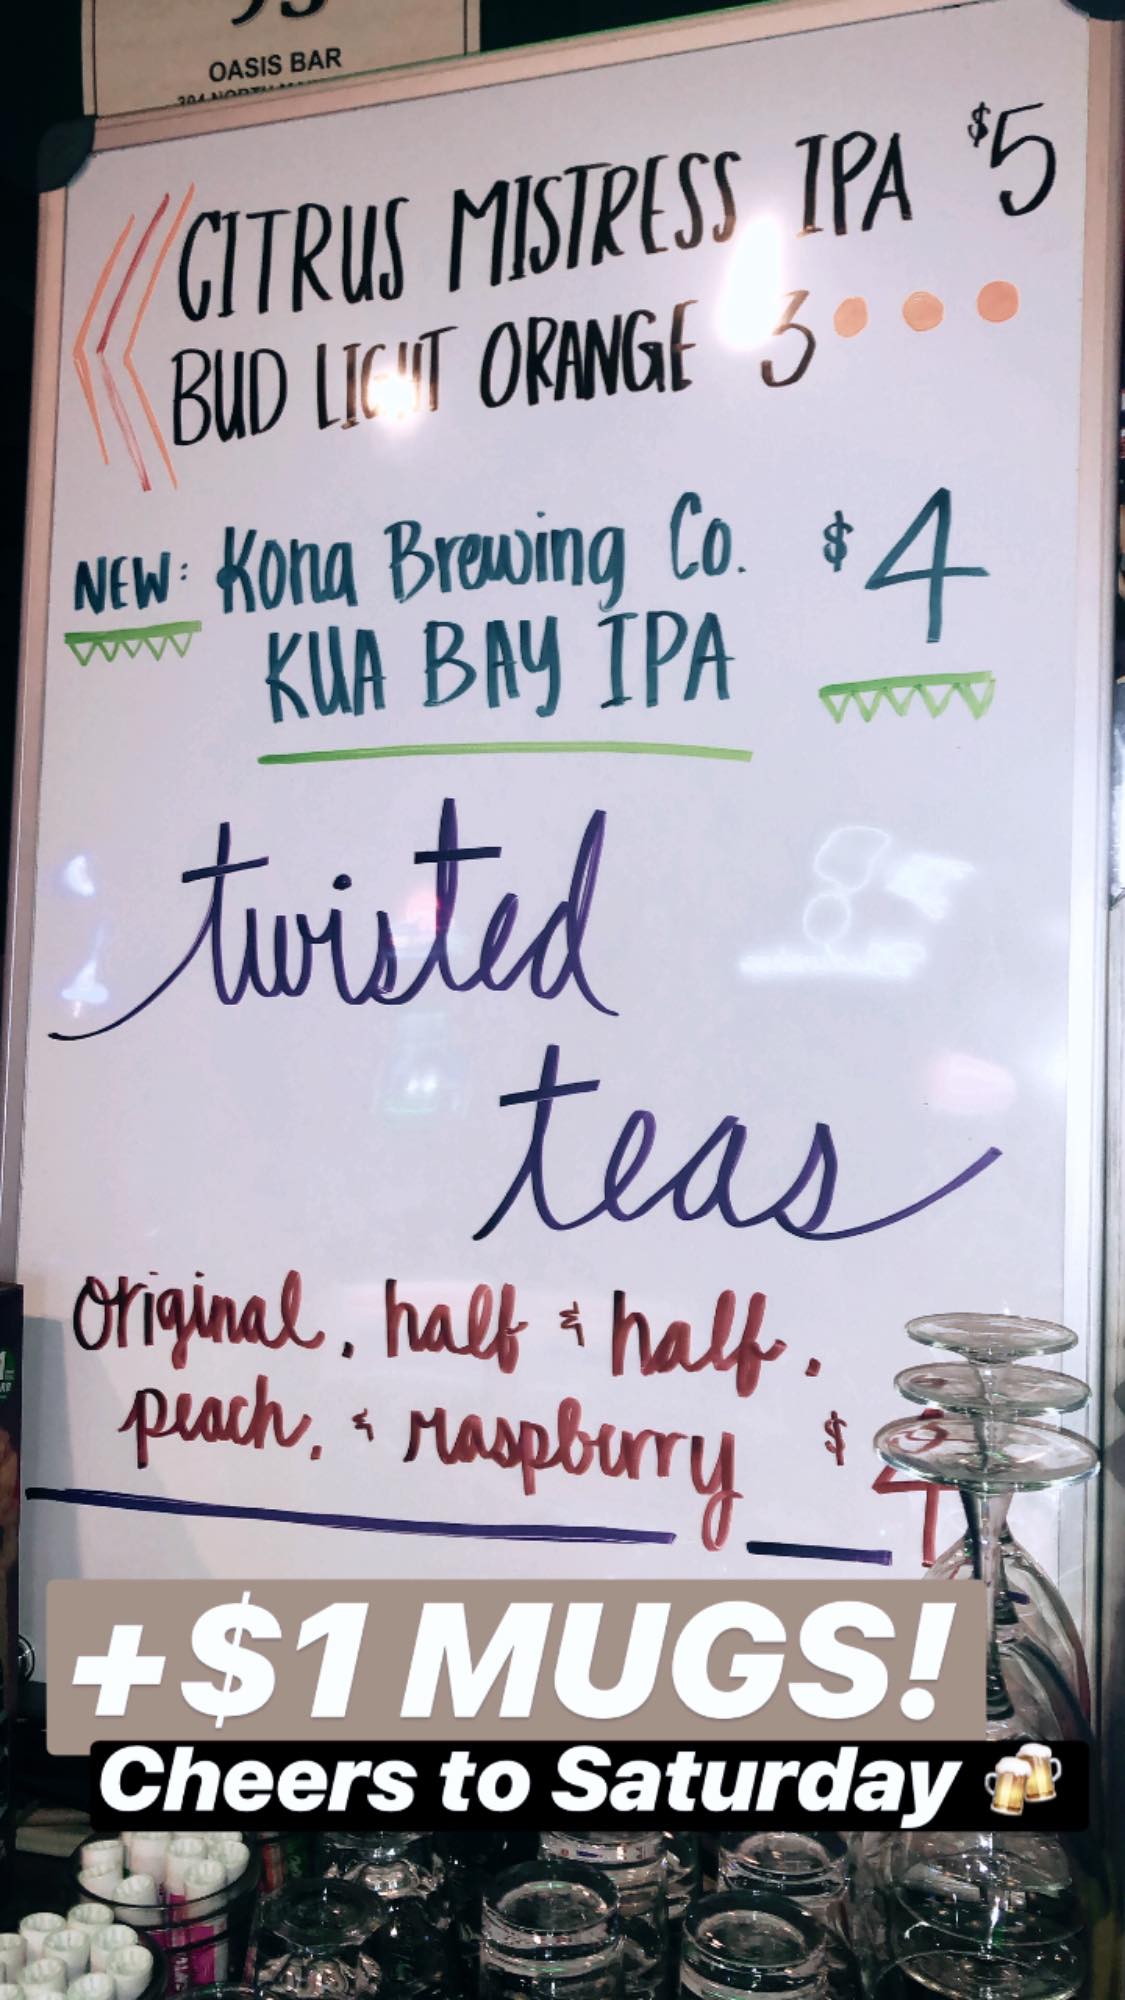 OASIS BAR
CITRUS MISTRESS IPA $5
BUD LIGHT ORANGE 3
NEW: Kona Brewing Co. $4
KUA BAY IPA
twisted
teas
Original, half & half,
peach, & raspberry $
+$1 MUGS!
Cheers to Saturday 🍻